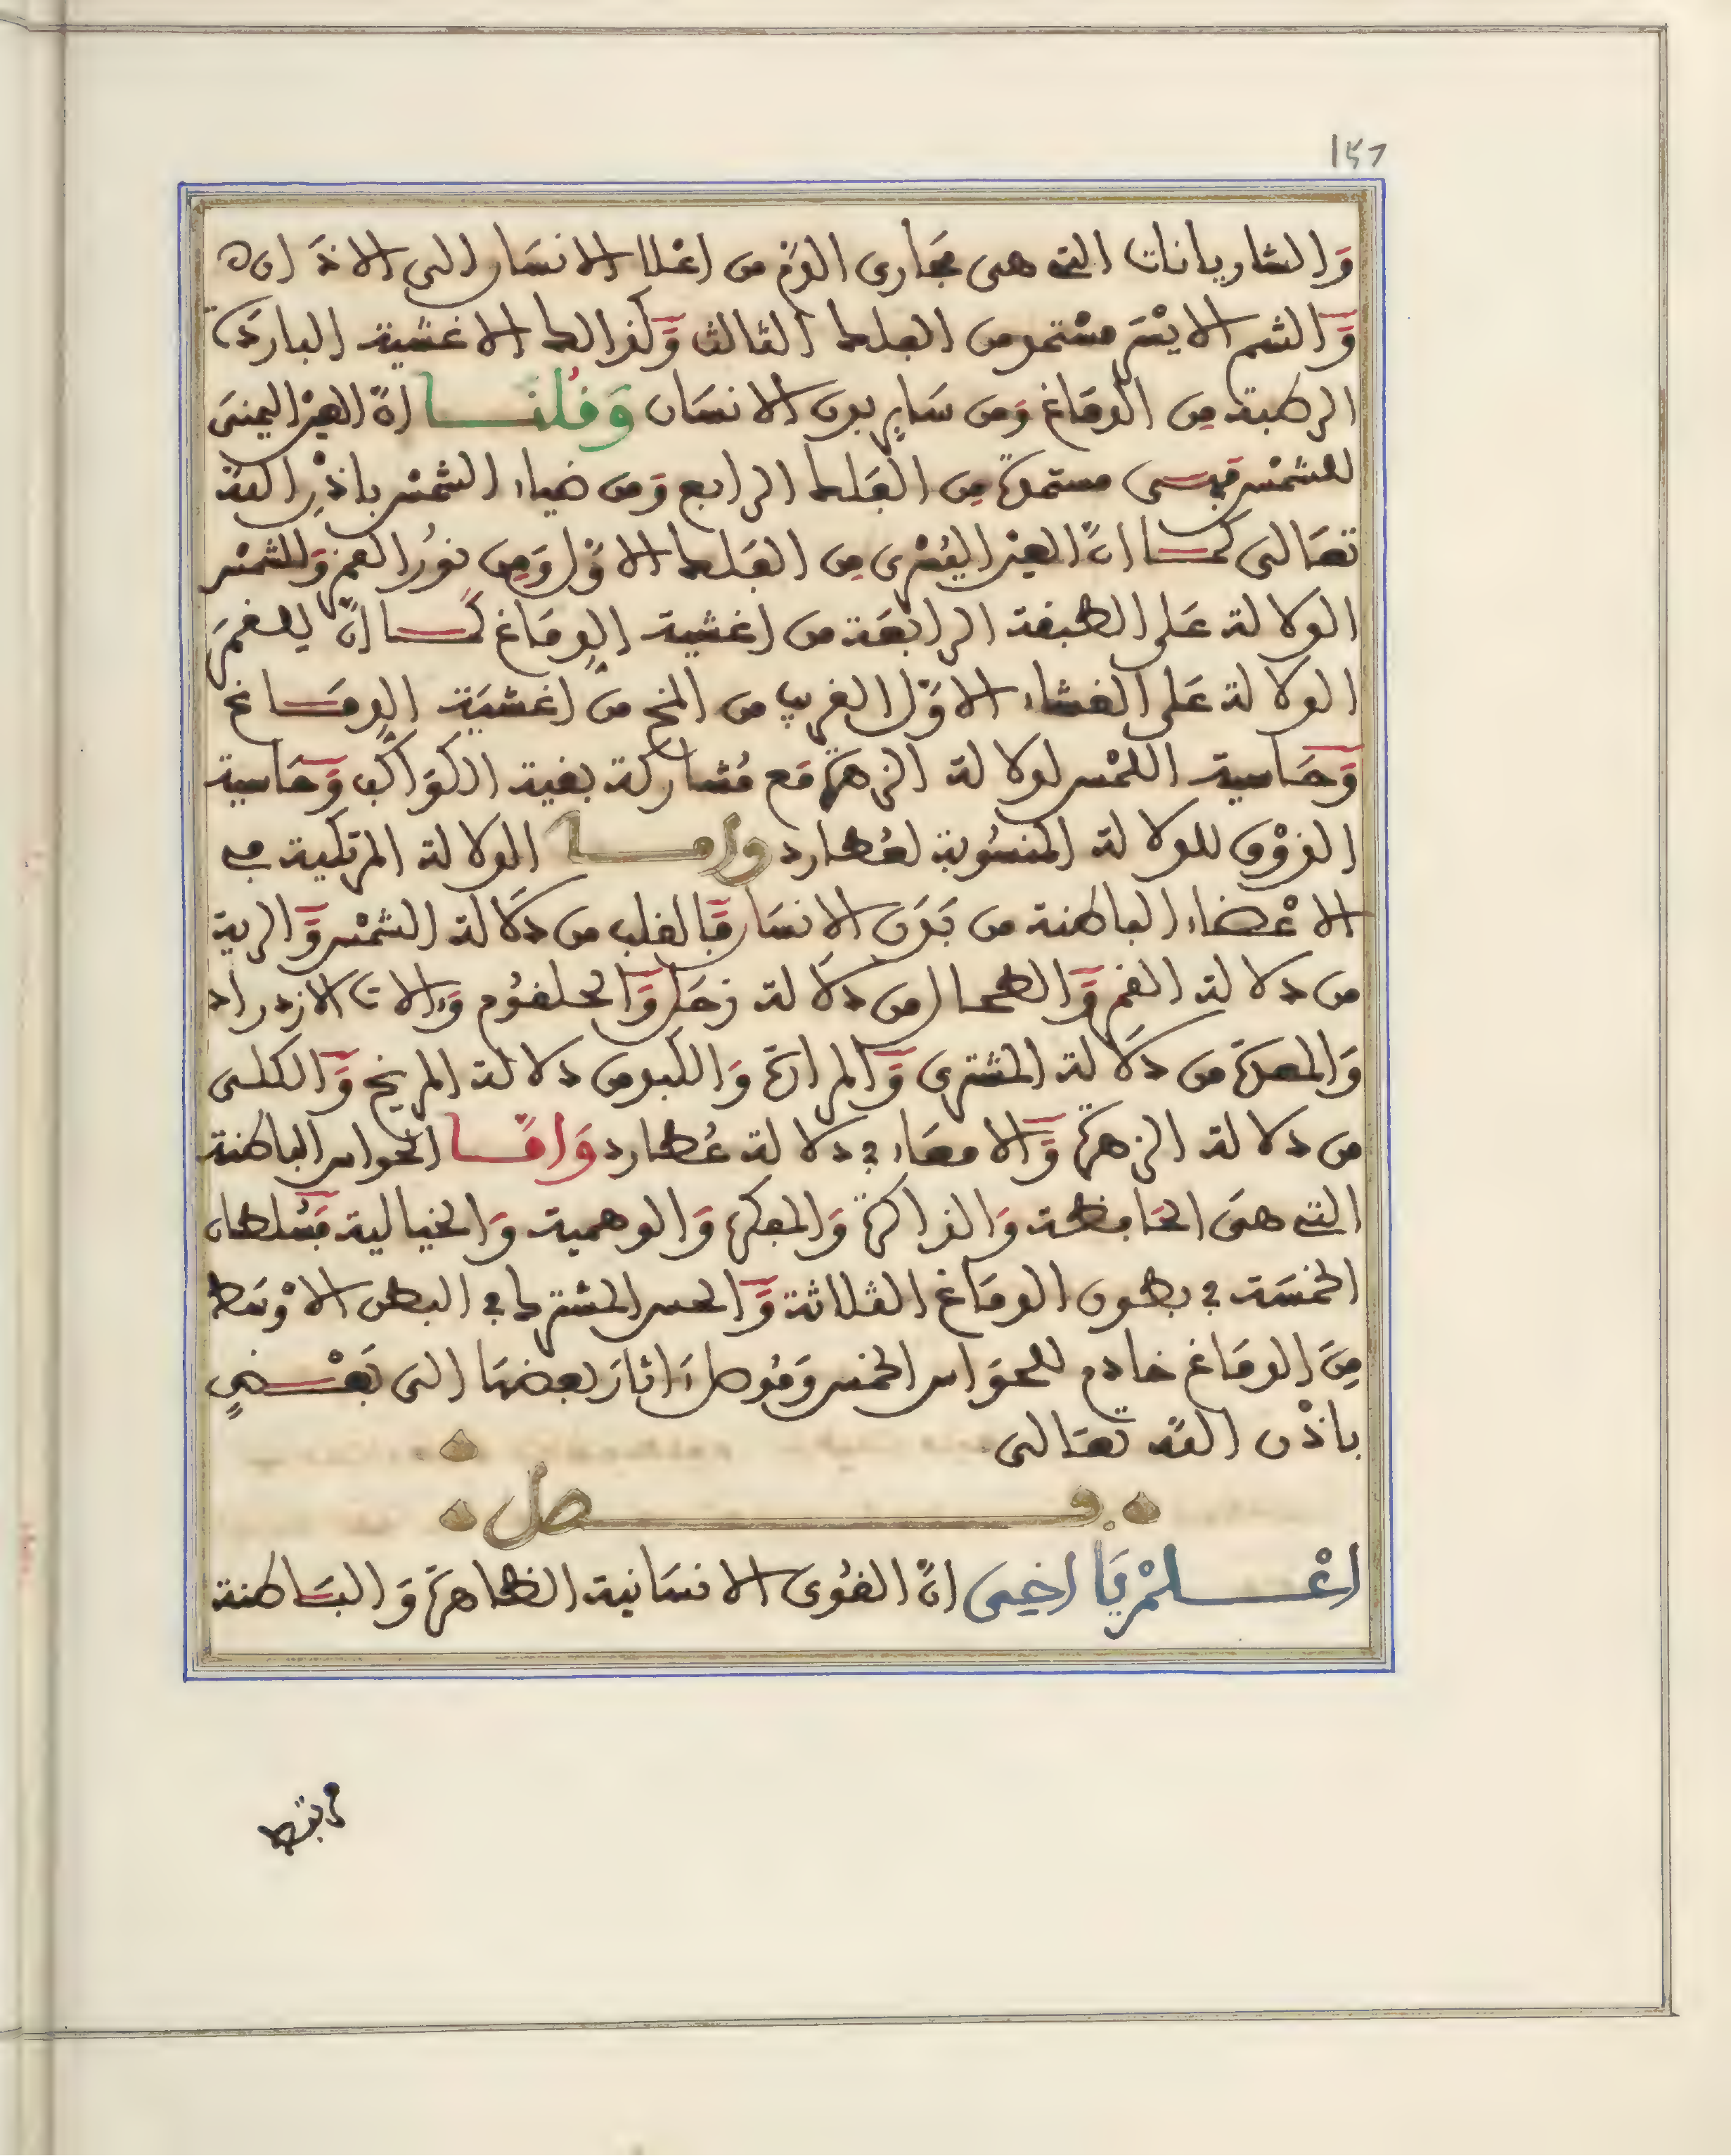 ١٥٦
وَالشاريانات التي هي مَجَاري الدّم من اعْلا الانسَان الى الاذَان
وَّالشم الايْسَر مسْتمد من الفلك الثالث وَّكذالك الاغشية الباردَة
الرطبة مِن الدمَاغ وَمن سَاير بدن الانسَان وَقُلْنَا انّ العيْن اليمنى
للشمْس فهـى مستمدّة مِن الفَلك الرابع وَمن ضياء الشمْس باذْنِ الله
تعَالى كمـا انّ العيْن اليُسْرى مِن الفَلك الاوّل وَمِن نورُ القمر وَللشمْس
الدلالة عَلى الطبقة الرابعَة من اغشية الدِمَاغ كمـا انّ للقمَر
الدلالة عَلى الغشاء الاوّل القريب من المخ من اغشيَة الدِمَـاغ
وَّحَاسية اللمْس لدلالة الزهرَة مَع مُشاركة بقية الكوَاكب وَّحَاسية
الذوْق للدلالة المنسُوبة لعُطارد وامـا الدلالة المرتكبة في
الاعْضاء الباطنة من بَدَن الانسَان فَّالقلب من دَلالة الشمْس وَّالرية
من دلالة القمر وَّالطحال من دَلالة زحَل وَّالحلقوُم وَءالات الازدراد
وَالمعدَة من دَلالة المشتري وَّالمرارَة وَالكبد من دلالة المريخ وَّالكلى
من دلالة الزهرَة وَّالامعَاء في دلالة عُطارد وَامَّـا الحواس الباطنة
التي هىَ الحَافظة وَالذاكرَة وَالمفكرة وَالوهمية وَالخيالية فمَسْلطان
الخمسَة في بطون الدمَاغ الثلاثة وَّالحس المشترك في البطن الاوْسَط
مِنَ الدمَاغ خادم للحوَاس الخمس وَمُوصل ءَاثارَ بعضهَا الى بَعْـضٍ
باذْن الله تعَالى
فـصل
اعْـلمْ يَا اخِى انّ القُوى الانسَانية الظاهرَة وَالبَـاطنة